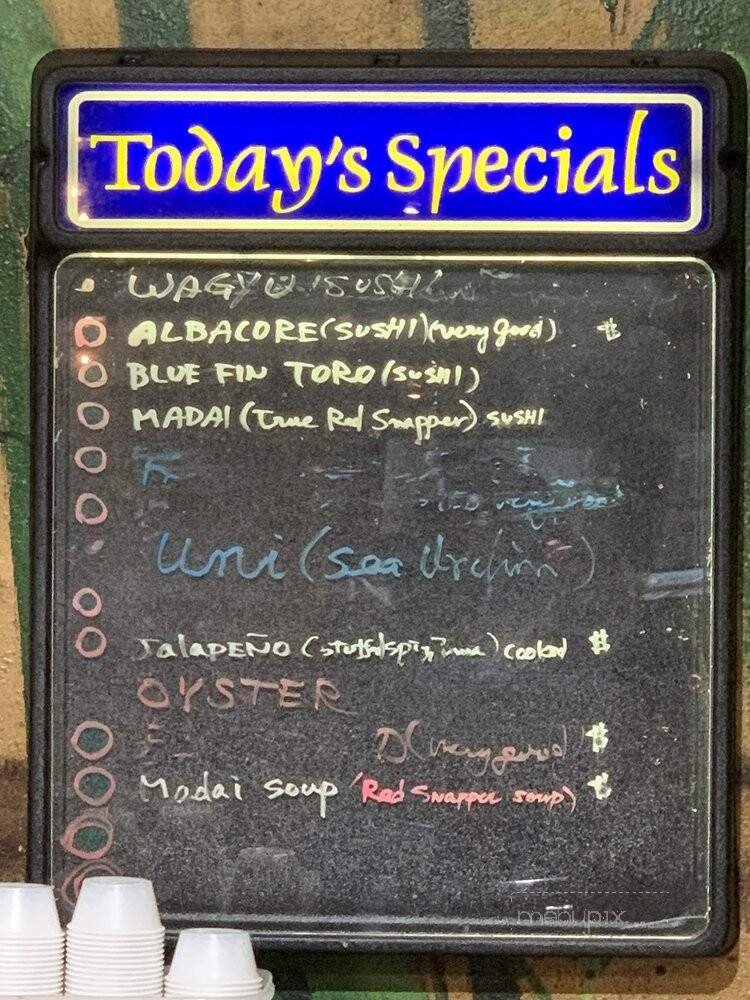 Today's Specials
WAGYU SUSHI
ALBACORE (SUSHI) (very good) $
BLUE FIN TORO (SUSHI)
MADAI (True Red Snapper) SUSHI
uni (sea Urchin)
JalaPEÑO ( ) cooked $
OYSTER
(very good) $
Madai soup (Red Snapper soup) $
menupix